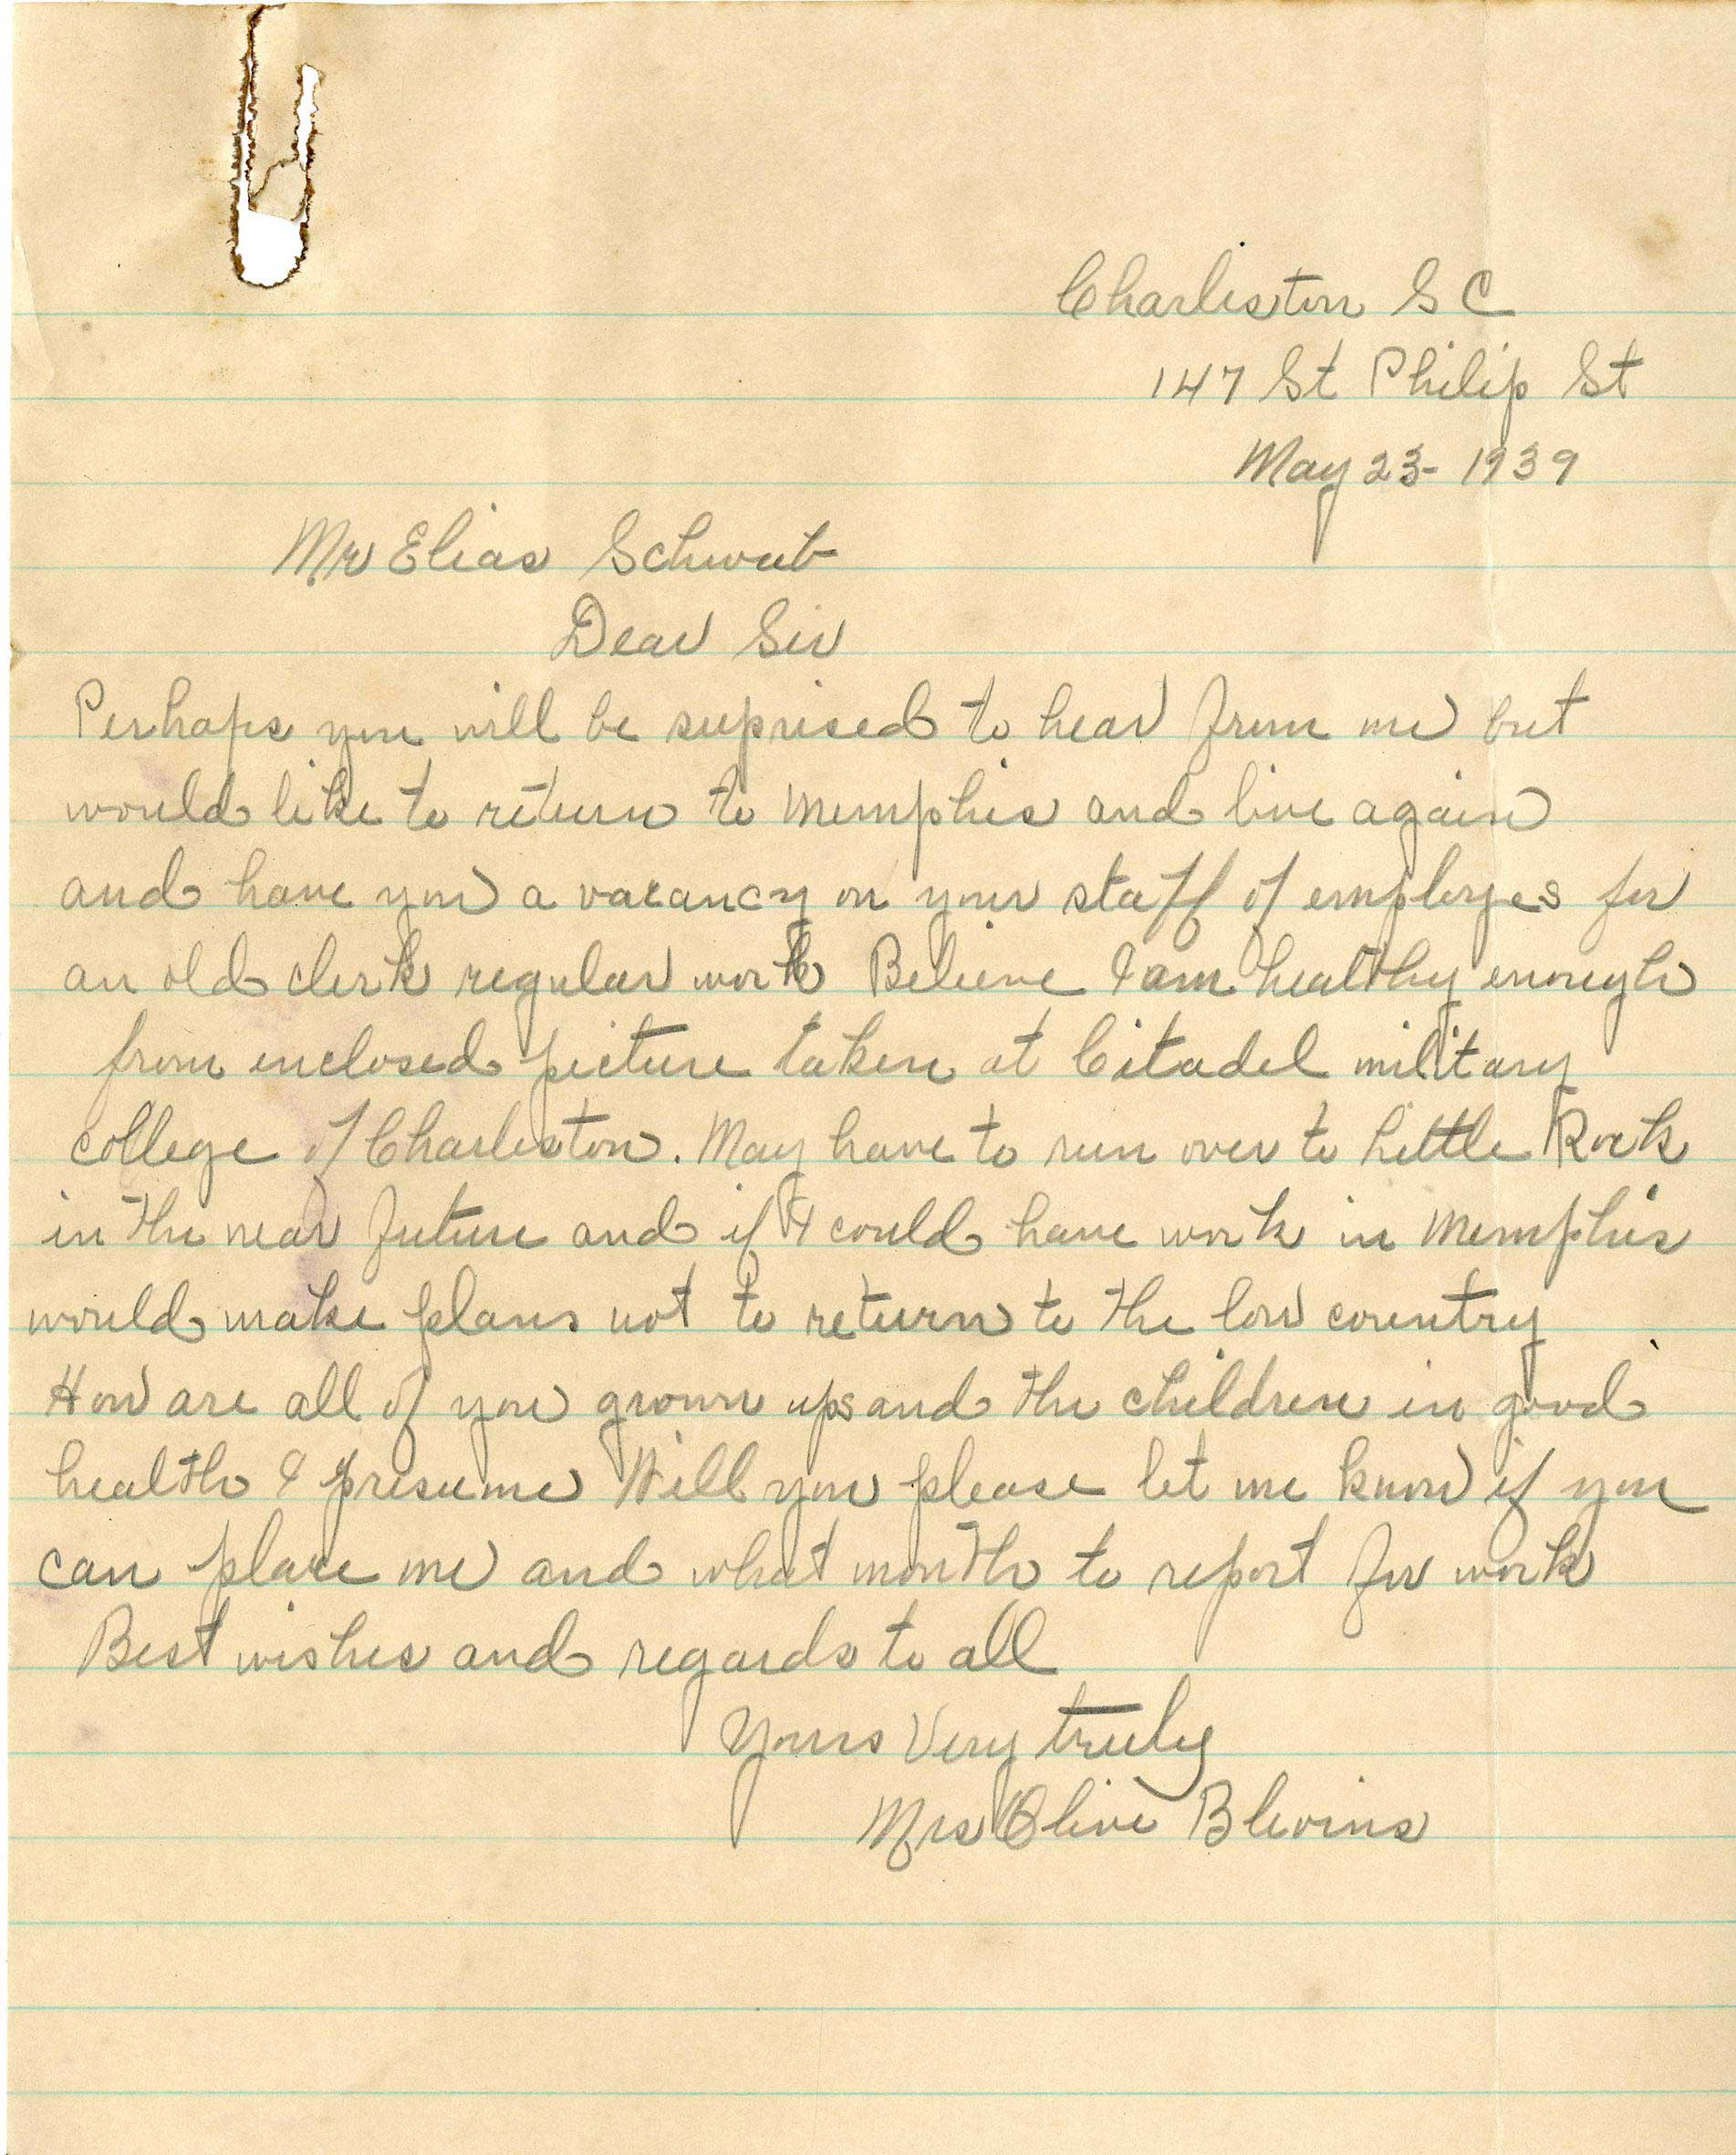 Charleston S C
147 St Philip St
May 23- 1939
Mr Elias Schwab
Dear Sir
Perhaps you will be suprised to hear from me but
would like to return to Memphis and live again
and have you a vacancy on your staff of employes for
an old clerk regular work Believe I am healthy enough
from enclosed picture taken at Citadel military
college of Charleston. May have to run over to Little Rock
in the near future and if I could have work in Memphis
would make plans not to return to the low country
How are all of you grown ups and the children in good
health I presume Will you please let me know if you
can place me and what month to report for work
Best wishes and regards to all
Yours Very truly
Mrs Olive Blevins